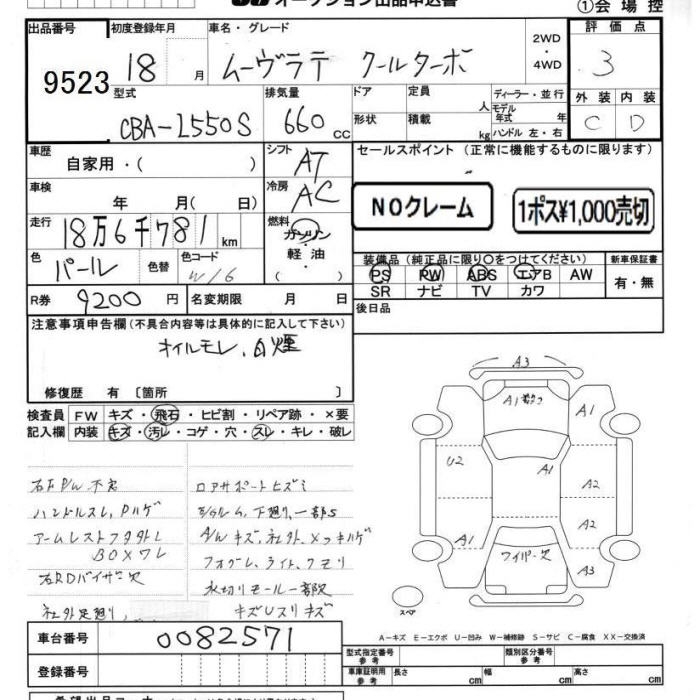 オークション出品申込書
①会場控
出品番号
9523
初度登録年月
18 月
車名・グレード
ムーヴラテ クールターボ
2WD
・
4WD
評価点
3
型式
CBA-L550S
排気量
660 cc
ドア
定員
人
ディーラー・並行
モデル年式 年
形状
積載
kg
ハンドル 左・右
外装
内装
C
D
車歴
自家用・( )
シフト
AT
セールスポイント (正常に機能するものに限ります)
車検
年 月( 日)
冷房
AC
NOクレーム
1ポス¥1,000売切
走行
18万6千781 km
燃料
ガソリン
軽油
( )
色
パール
色替
色コード
W16
装備品 (純正品に限り〇をつけてください)
新車保証書
PS PW ABS エアB AW
有・無
SR ナビ TV カワ
R券
9200 円
名変期限 月 日
後日品
注意事項申告欄(不具合内容等は具体的に記入して下さい)
オイルモレ、白煙
修復歴 有 〔箇所 〕
検査員
記入欄
FW キズ・飛石・ヒビ割・リペア跡・×要
内装 キズ・汚レ・コゲ・穴・スレ・キレ・破レ
右F P/W 不良
ハンドルスレ、Pハゲ
アームレストフタ外レ
BOXワレ
右RDバイザー欠
ロアサポートヒズミ
下廻り、一部S
A/W キズ、社外、メッキハゲ
フォグレ、ライト、クモリ
水切りモール一部段
キズUスリキズ
A3
A1
A1
U2
A1
A2
A2
A1
ワイパー欠
A3
スペア
A-キズ E-エクボ U-凹み W-補修跡 S-サビ C-腐食 XX-交換済
車台番号
0082571
登録番号
型式指定番号
参考
類別区分番号
参考
車庫証明用
参考
長さ cm
幅 cm
高さ cm